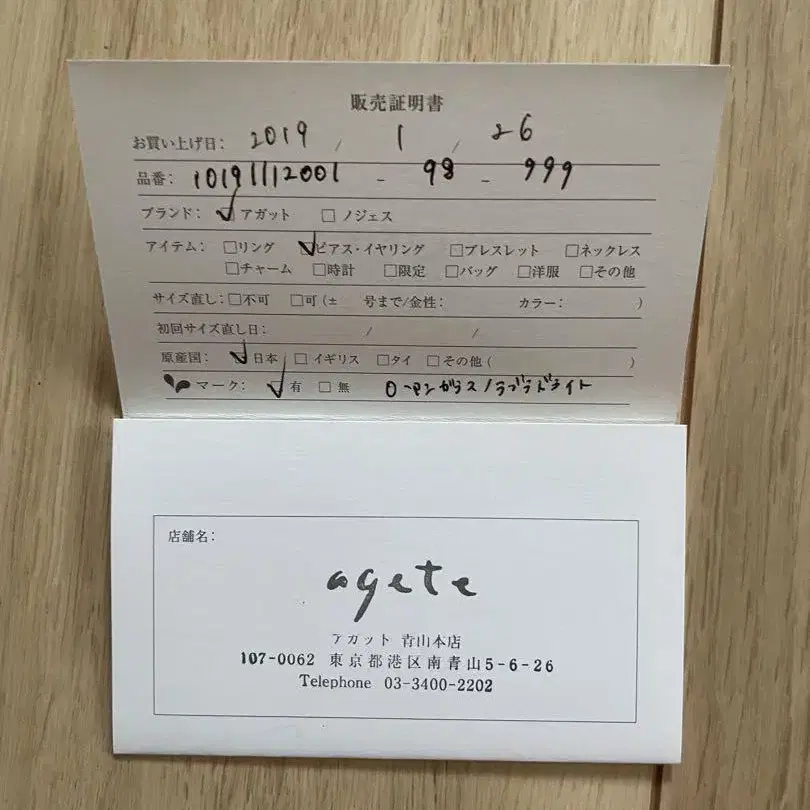 販売証明書
お買い上げ日: 2019 / 1 / 26
品番: 10191112001 - 98 - 999
ブランド: ☑アガット □ノジェス
アイテム: □リング ☑ピアス・イヤリング □ブレスレット □ネックレス
□チャーム □時計 □限定 □バッグ □洋服 □その他
サイズ直し: □不可 □可(± 号まで/金性: カラー: )
初回サイズ直し日: / /
原産国: ☑日本 □イギリス □タイ □その他( )
マーク: ☑有 □無 ローマンガラス/ラブラドライト
店舗名:
agete
アガット 青山本店
107-0062 東京都港区南青山5-6-26
Telephone 03-3400-2202